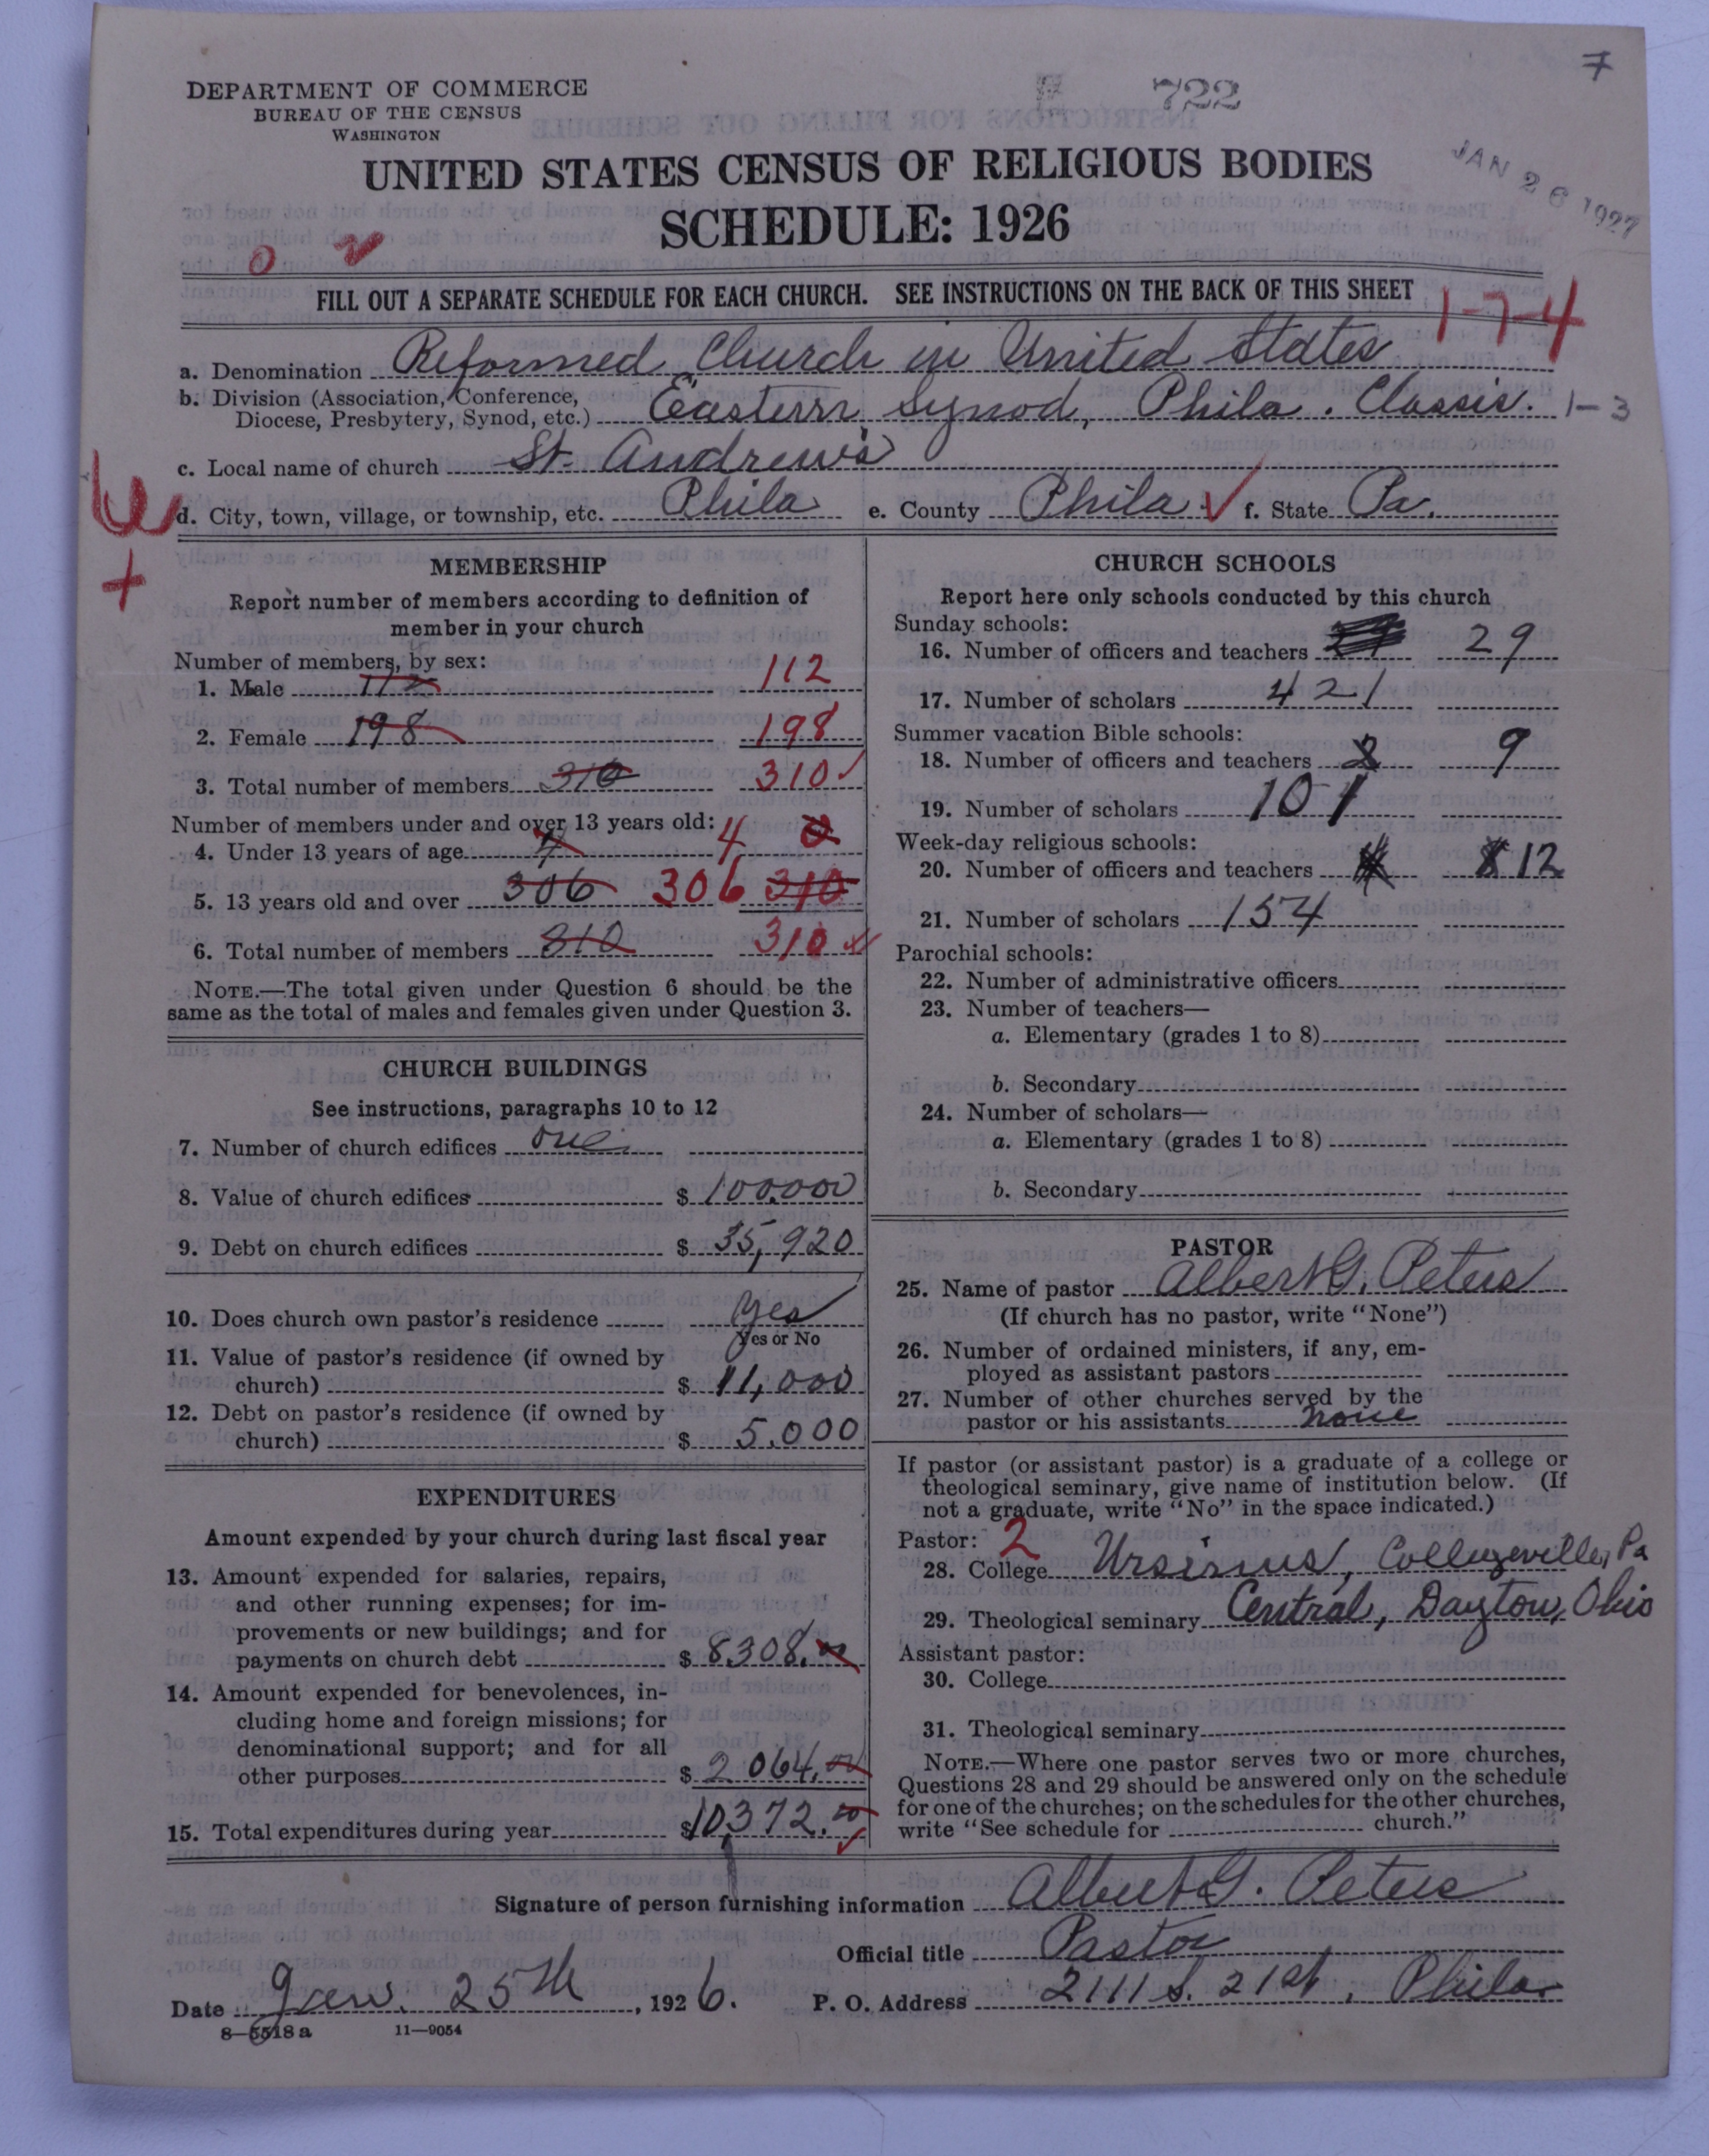 7
722
DEPARTMENT OF COMMERCE
BUREAU OF THE CENSUS
WASHINGTON
JAN 26 1927
UNITED STATES CENSUS OF RELIGIOUS BODIES
SCHEDULE: 1926
FILL OUT A SEPARATE SCHEDULE FOR EACH CHURCH. SEE INSTRUCTIONS ON THE BACK OF THIS SHEET
1-7-4
a. Denomination Reformed Church in United States
b. Division (Association, Conference,
Diocese, Presbytery, Synod, etc.) Eastern Synod, Phila. Classis. 1-3
c. Local name of church St. Andrew's
d. City, town, village, or township, etc. Phila e. County Phila ✓ f. State Pa.
MEMBERSHIP
Report number of members according to definition of
member in your church
Number of members, by sex:
1. Male 112 112
2. Female 198 198
3. Total number of members 310 310 ✓
Number of members under and over 13 years old:
4. Under 13 years of age 4 4 0
5. 13 years old and over 306 306 310
6. Total number of members 310 310
NOTE.—The total given under Question 6 should be the
same as the total of males and females given under Question 3.
CHURCH BUILDINGS
See instructions, paragraphs 10 to 12
7. Number of church edifices one
8. Value of church edifices $ 100,000
9. Debt on church edifices $ 35,920
10. Does church own pastor's residence yes
Yes or No
11. Value of pastor's residence (if owned by
church) $ 11,000
12. Debt on pastor's residence (if owned by
church) $ 5.000
EXPENDITURES
Amount expended by your church during last fiscal year
13. Amount expended for salaries, repairs,
and other running expenses; for im-
provements or new buildings; and for
payments on church debt $ 8308.00
14. Amount expended for benevolences, in-
cluding home and foreign missions; for
denominational support; and for all
other purposes $ 2 064.00
15. Total expenditures during year $10,372.00
CHURCH SCHOOLS
Report here only schools conducted by this church
Sunday schools:
16. Number of officers and teachers 29
17. Number of scholars 421
Summer vacation Bible schools:
18. Number of officers and teachers 9
19. Number of scholars 101
Week-day religious schools:
20. Number of officers and teachers 8 12
21. Number of scholars 154
Parochial schools:
22. Number of administrative officers
23. Number of teachers—
a. Elementary (grades 1 to 8)
b. Secondary
24. Number of scholars—
a. Elementary (grades 1 to 8)
b. Secondary
PASTOR
25. Name of pastor Albert G. Peters
(If church has no pastor, write "None")
26. Number of ordained ministers, if any, em-
ployed as assistant pastors
27. Number of other churches served by the
pastor or his assistants none
If pastor (or assistant pastor) is a graduate of a college or
theological seminary, give name of institution below. (If
not a graduate, write "No" in the space indicated.)
Pastor: 2
28. College Ursinus, Collegeville, Pa
29. Theological seminary Central, Dayton, Ohio
Assistant pastor:
30. College
31. Theological seminary
NOTE.—Where one pastor serves two or more churches,
Questions 28 and 29 should be answered only on the schedule
for one of the churches; on the schedules for the other churches,
write "See schedule for church."
Signature of person furnishing information Albert G. Peters
Official title Pastor
Date Jan. 25th, 1926. P. O. Address 2111 S. 21st, Phila.
8—5518 a 11—9054